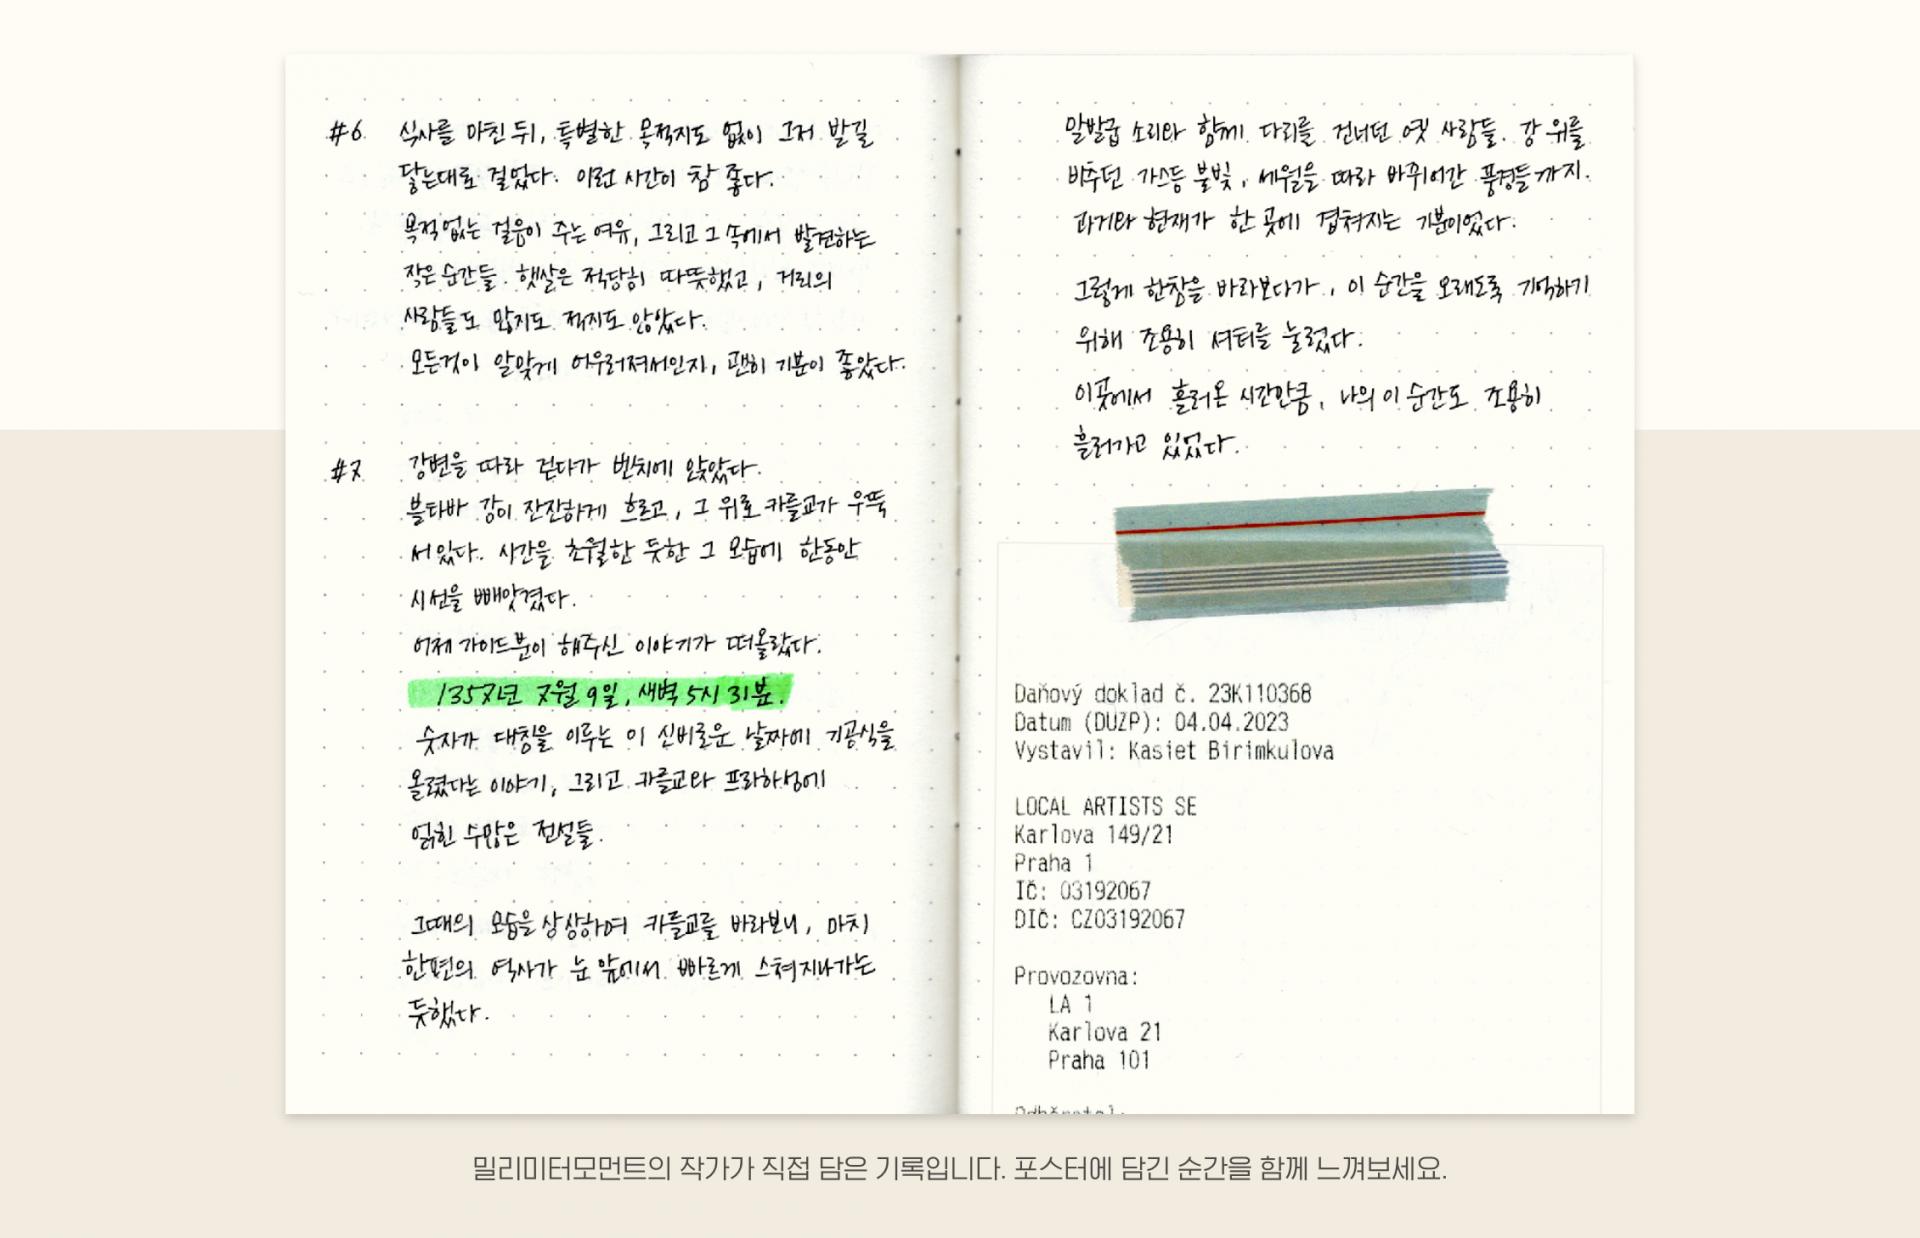 #6 식사를 마친 뒤, 특별한 목적지도 없이 그저 발길
닿는대로 걸었다. 이런 시간이 참 좋다.
목적없는 걸음이 주는 여유, 그리고 그 속에서 발견하는
작은 순간들. 햇살은 적당히 따뜻했고, 거리의
사람들도 많지도 적지도 않았다.
모든것이 알맞게 어우러져서인지, 괜히 기분이 좋았다.
#7 강변을 따라 걷다가 벤치에 앉았다.
블타바 강이 잔잔하게 흐르고, 그 위로 카를교가 우뚝
서있다. 시간을 초월한 듯한 그 모습에 한동안
시선을 빼앗겼다.
어제 가이드분이 해주신 이야기가 떠올랐다.
1357년 7월 9일, 새벽 5시 31분.
숫자가 대칭을 이루는 이 신비로운 날짜에 기공식을
올렸다는 이야기, 그리고 카를교와 프라하성에
얽힌 수많은 전설들.
그때의 모습을 상상하며 카를교를 바라보니, 마치
한편의 역사가 눈 앞에서 빠르게 스쳐지나가는
듯했다.
말발굽 소리와 함께 다리를 건너던 옛 사람들. 강 위를
비추던 가스등 불빛, 세월을 따라 바뀌어간 풍경들까지.
과거와 현재가 한 곳에 겹쳐지는 기분이었다.
그렇게 한참을 바라보다가, 이 순간을 오래도록 기억하기
위해 조용히 셔터를 눌렀다.
이곳에서 흘러온 시간만큼, 나의 이 순간도 조용히
흘러가고 있었다.
Daňový doklad č. 23K110368
Datum (DUZP): 04.04.2023
Vystavil: Kasiet Birimkulova
LOCAL ARTISTS SE
Karlova 149/21
Praha 1
IČ: 03192067
DIČ: CZ03192067
Provozovna:
LA 1
Karlova 21
Praha 101
밀리미터모먼트의 작가가 직접 담은 기록입니다. 포스터에 담긴 순간을 함께 느껴보세요.